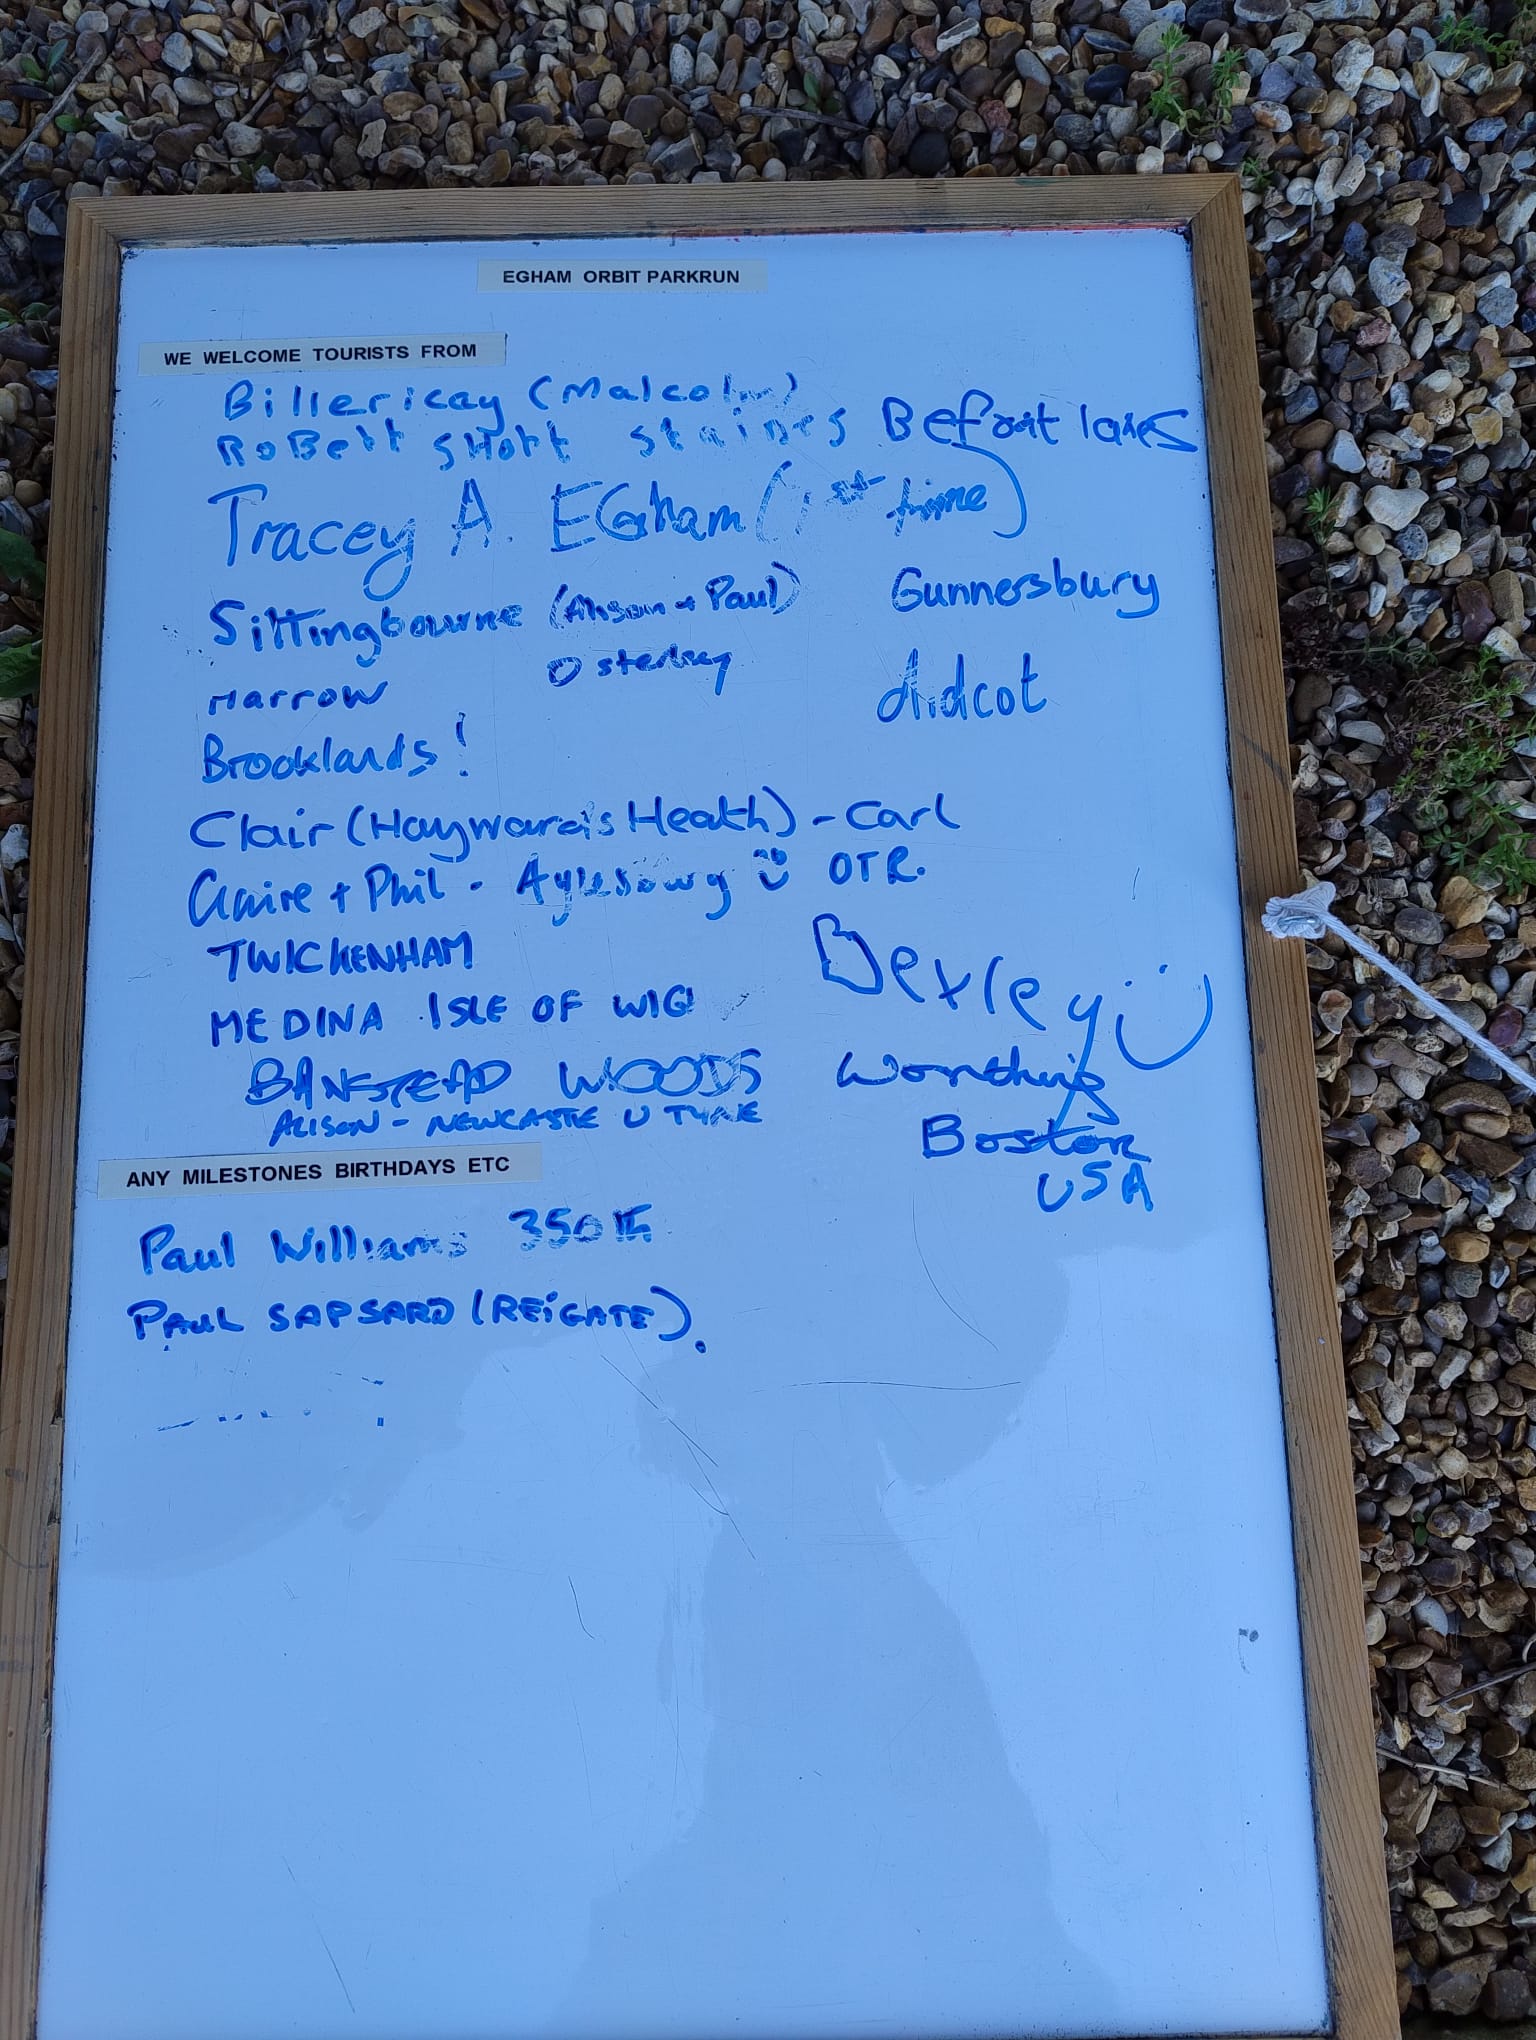 EGHAM ORBIT PARKRUN
WE WELCOME TOURISTS FROM
Billericay (Malcolm)
RoBert SHort staines
Tracey A. EGham (1st time)
Sittingbourne (Alison + Paul)
Harrow
Osterley
Brooklands!
Clair (Haywards Heath) - Carl
Claire + Phil - Aylesbury OTR.
TWICKENHAM
MEDINA ISLE OF WIG
BANSTEAD WOODS
ALISON - NEWCASTLE U TYNE
lakes
Gunnersbury
didcot
Bexley
Worthing
Boston
USA
ANY MILESTONES BIRTHDAYS ETC
Paul Williams 350th
PAUL SAPSARD (REiGATE).